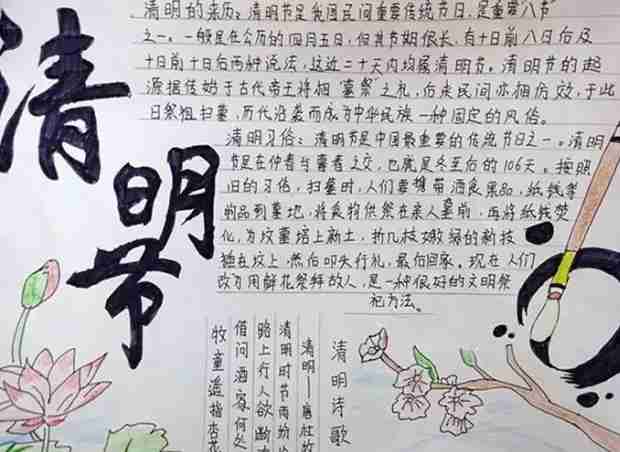 清明节
清明的来历：清明节是我国民间重要传统节日，是重要"八节"
之一。一般是在公历的四月五日，但其节期很长，有十日前八日后及
十日前十日后两种说法，这近二十天内均属清明节。清明节的起
源据传始于古代帝王将相"墓祭"之礼，后来民间亦相仿效，于此
日祭祖扫墓，历代沿袭而成为中华民族一种固定的风俗。
清明习俗：清明节是中国最重要的传统节日之一。清明
节是在仲春与暮春之交，也就是冬至后的106天。按照
旧的习俗，扫墓时，人们要携带酒食果品，纸钱等
物品到墓地，将食物供祭在亲人墓前，再将纸钱焚
化，为坟墓培上新土，折几枝嫩绿的新枝
插在坟上，然后叩头行礼，最后回家。现在人们
改为用鲜花祭拜故人，是一种很好的文明祭
祀方法。
清明诗歌
清明—唐杜牧
清明时节雨纷
路上行人欲断
借问酒家何处
牧童遥指杏花